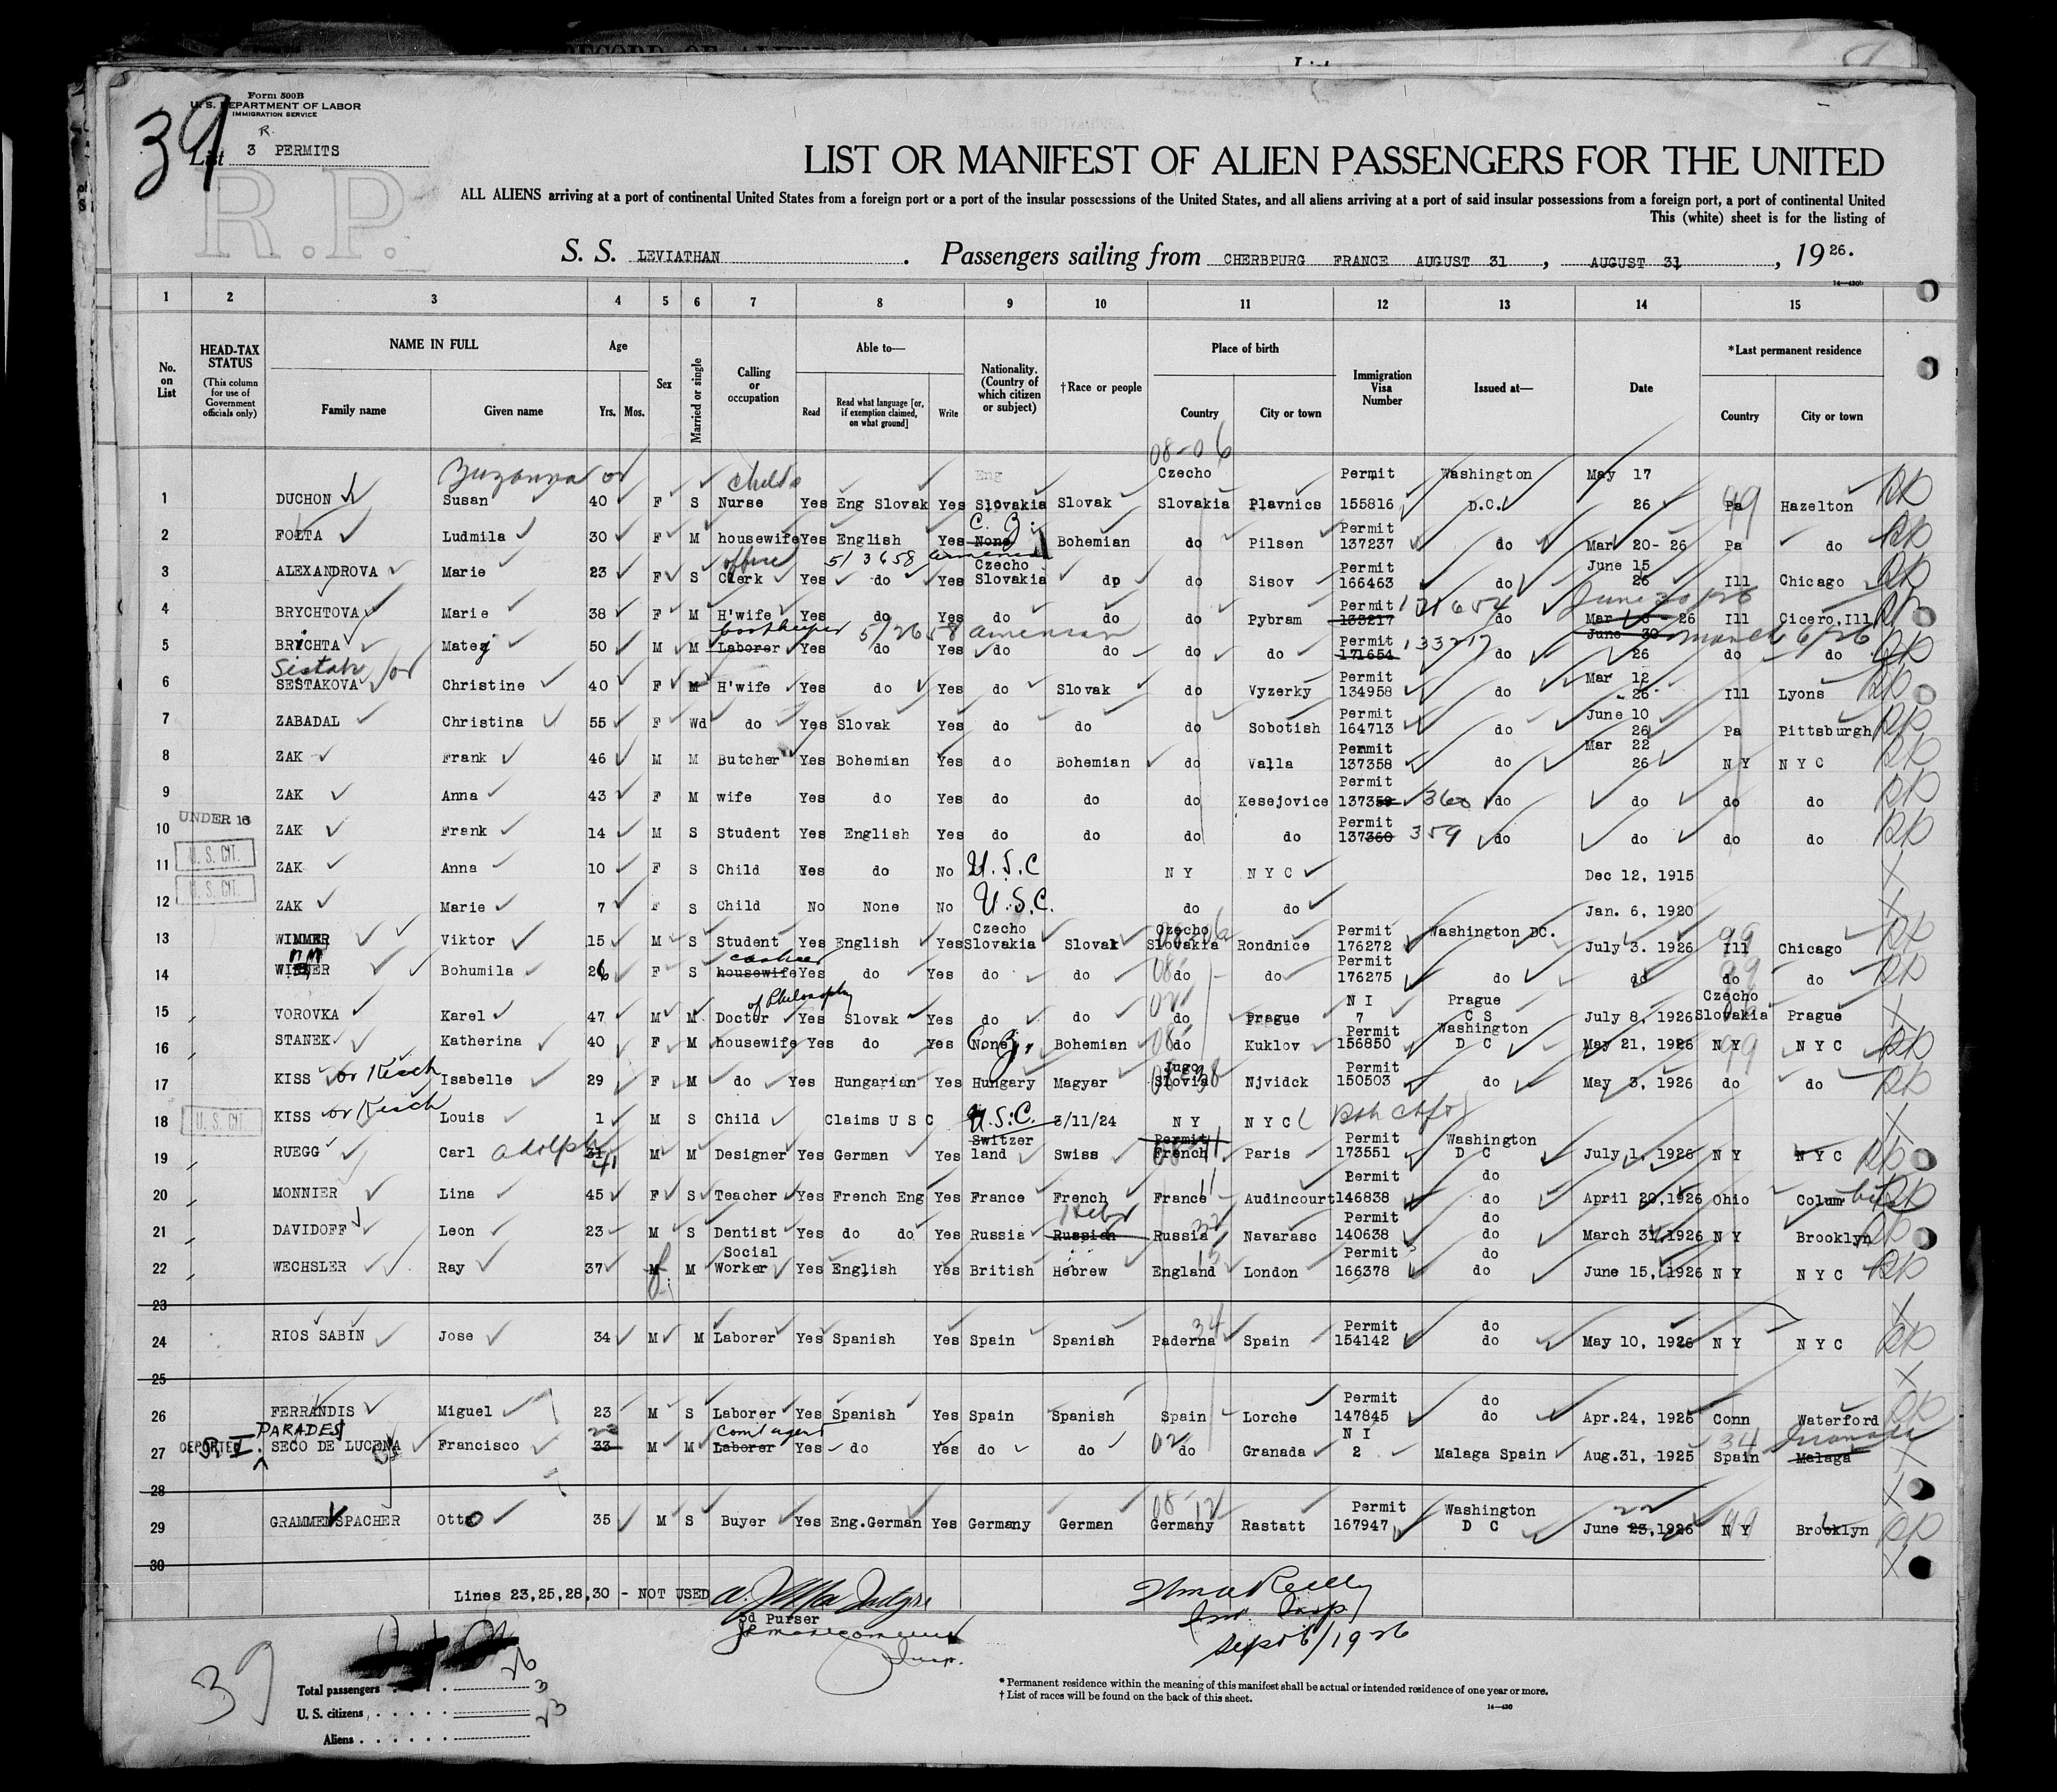 Form 500B
U. S. DEPARTMENT OF LABOR
IMMIGRATION SERVICE
39
R.
List 3 PERMITS
R.P.
LIST OR MANIFEST OF ALIEN PASSENGERS FOR THE UNITED
ALL ALIENS arriving at a port of continental United States from a foreign port or a port of the insular possessions of the United States, and all aliens arriving at a port of said insular possessions from a foreign port, a port of continental United
This (white) sheet is for the listing of
S. S. LEVIATHAN. Passengers sailing from CHERBPURG FRANCE AUGUST 31, AUGUST 31, 1926.
14—430b
1 2 3 4 5 6 7 8 9 10 11 12 13 14 15
No. on List
HEAD-TAX STATUS
(This column for use of Government officials only)
NAME IN FULL
Family name Given name
Age
Yrs. Mos.
Sex
Married or single
Calling or occupation
Able to—
Read Read what language [or, if exemption claimed, on what ground] Write
Nationality. (Country of which citizen or subject)
†Race or people
Place of birth
Country City or town
Immigration Visa Number
Issued at—
Date
*Last permanent residence
Country City or town
08-06
Zuzanna or Czecho Permit Washington May 17
1 DUCHON Susan 40 F S Nurse Yes Eng Slovak Yes Slovakia Slovak Slovakia Plavnics 155816 D.C. 26 Pa Hazelton
C. Z. Permit
2 FOLTA Ludmila 30 F M housewife Yes English Yes None Bohemian do Pilsen 137237 do Mar 20- 26 Pa do
office 513658 Czecho Permit June 15
3 ALEXANDROVA Marie 23 F S Clerk Yes do Yes Slovakia do do Sisov 166463 do 26 Ill Chicago
Permit 171654 June 30/26
4 BRYCHTOVA Marie 38 F M H'wife Yes do Yes do do do Pybram 133217 do Mar 6 - 26 Ill Cicero,Ill
bookkeeper 5/2658 american Permit 133217 June 30 March 6/26
5 BRYCHTA Matej 50 M M Laborer Yes do Yes do do do do 171654 do 26 do do
Sestak or Permit Mar 12
6 SESTAKOVA Christine 40 F M H'wife Yes do Yes do Slovak do Vyzerky 134958 do 26 Ill Lyons
Permit June 10
7 ZABADAL Christina 55 F Wd do Yes Slovak Yes do do do Sobotish 164713 do 26 Pa Pittsburgh
Permit Mar 22
8 ZAK Frank 46 M M Butcher Yes Bohemian Yes do Bohemian do Valla 137358 do 26 N Y N Y C
Permit
9 ZAK Anna 43 F M wife Yes do Yes do do do Kesejovice 137359 360 do do do do
UNDER 16 Permit
10 ZAK Frank 14 M S Student Yes English Yes do do do do 137360 359 do do do do
U. S. CIT.
11 ZAK Anna 10 F S Child Yes do No U.S.C N Y N Y C Dec 12, 1915
U. S. CIT.
12 ZAK Marie 7 F S Child No None No U.S.C. do do Jan. 6, 1920
Czecho Czecho Permit Washington DC.
13 WIMMER Viktor 15 M S Student Yes English Yes Slovakia Slovak Slovakia Rondnice 176272 July 3. 1926 Ill Chicago
cashier Permit
14 Bohumila 26 F S housewife Yes do Yes do do do do 176275 do do do do
of Philosophy N I Prague Czecho
15 VOROVKA Karel 47 M M Doctor Yes Slovak Yes do do do Prague 7 C S July 8, 1926 Slovakia Prague
Permit Washington
16 STANEK Katherina 40 F M housewife Yes do Yes None Bohemian do Kuklov 156850 D C May 21, 1926 N Y N Y C
Jugo Permit
17 KISS or Kisch Isabelle 29 F M do Yes Hungarian Yes Hungary Magyar Slovia Njvidck 150503 do May 3, 1926 do do
U. S. CIT.
18 KISS or Kisch Louis 1 M S Child Claims U S C U.S.C. 3/11/24 N Y N Y C
Switzer Permit Permit Washington
19 RUEGG Carl adolph 31 41 M M Designer Yes German Yes land Swiss French Paris 173551 D C July 1, 1926 N Y N Y C
Permit do
20 MONNIER Lina 45 F S Teacher Yes French Eng Yes France French France Audincourt 146838 do April 20,1926 Ohio Columbus
Hebr Permit do
21 DAVIDOFF Leon 23 M S Dentist Yes do do Yes Russia Russian Russia Navarasc 140638 do March 31,1926 N Y Brooklyn
Social Permit do
22 WECHSLER Ray 37 M f M Worker Yes English Yes British Hebrew England London 166378 do June 15,1926 N Y N Y C
23
Permit do
24 RIOS SABIN Jose 34 M M Laborer Yes Spanish Yes Spain Spanish Paderna Spain 154142 do May 10, 1926 N Y N Y C
25
Permit do
26 FERRANDIS Miguel 23 M S Laborer Yes Spanish Yes Spain Spanish Spain Lorche 147845 do Apr.24, 1926 Conn Waterford
PARADES Com'l agent N I
DEPORTED S.I.
27 SECO DE LUCENA Francisco 33 M M Laborer Yes do Yes do do do Granada 2 Malaga Spain Aug.31, 1925 Spain Malaga
28
Permit Washington 22
29 GRAMMENSPACHER Otto 35 M S Buyer Yes Eng.German Yes Germany German Germany Rastatt 167947 D C June 23,1926 N Y Brooklyn
30
Lines 23,25,28,30 - NOT USED
3d Purser
Insp.
Sept 6/1926
39
Total passengers 26
U. S. citizens 3
Aliens 23
* Permanent residence within the meaning of this manifest shall be actual or intended residence of one year or more.
† List of races will be found on the back of this sheet.
14—430